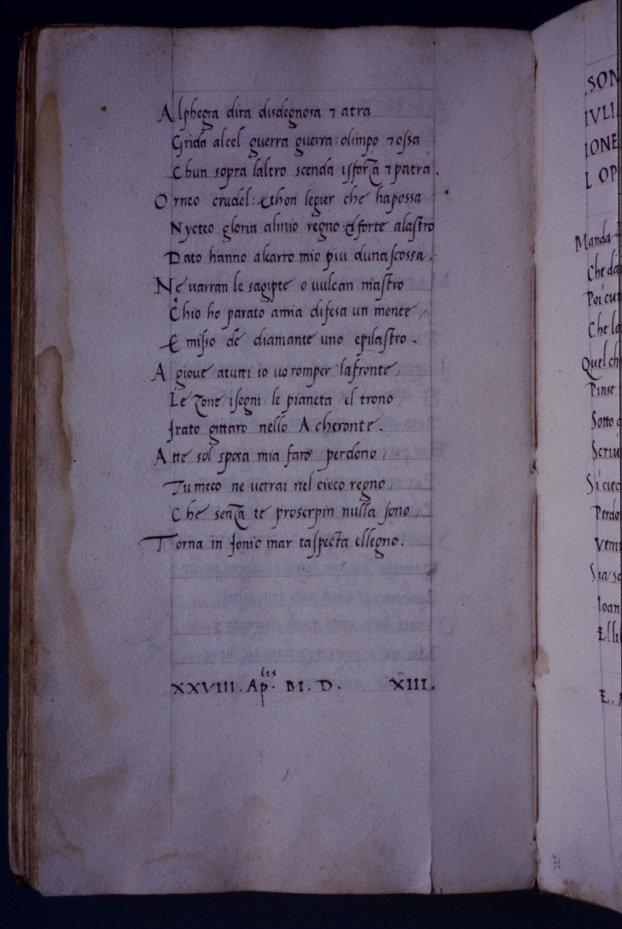 Alphegra dira disdegnosa ⁊ atra
Grida alcel guerra guerra: olimpo ⁊ ossa
Chun sopra laltro scenda isforza ⁊ patra.
Orneo crudel: ethon legier che hapossa
Nycteo gloria alnio regno & forte alastro
Dato hanno alcarro mio piu dunascossa.
Ne uarran le sagipte o uulcan mastro
Chio ho parato amia difesa un monte,
E misso de diamante uno epilastro.
A gioue atutti io uo romper lafronte,
Le zone i segni le pianeta el trono,
Irato gittaro nello Acheronte.
Atte sol sposa mia faro perdono,
Tu meco ne uerrai nel cieco regno,
Che senza te proserpin nulla sono,
Torna in Ionio mar taspecta ellegno.
XXVIII. Aplis. M. D. XIII.
SON
IVLI
IONE
L OP
Manda
Che da
Poi cu
Che lo
Quel ch
Pinse
Sotto
Scriu
Si ciec
Perdo
Veni
Sia so
Ioan
Elli
E.